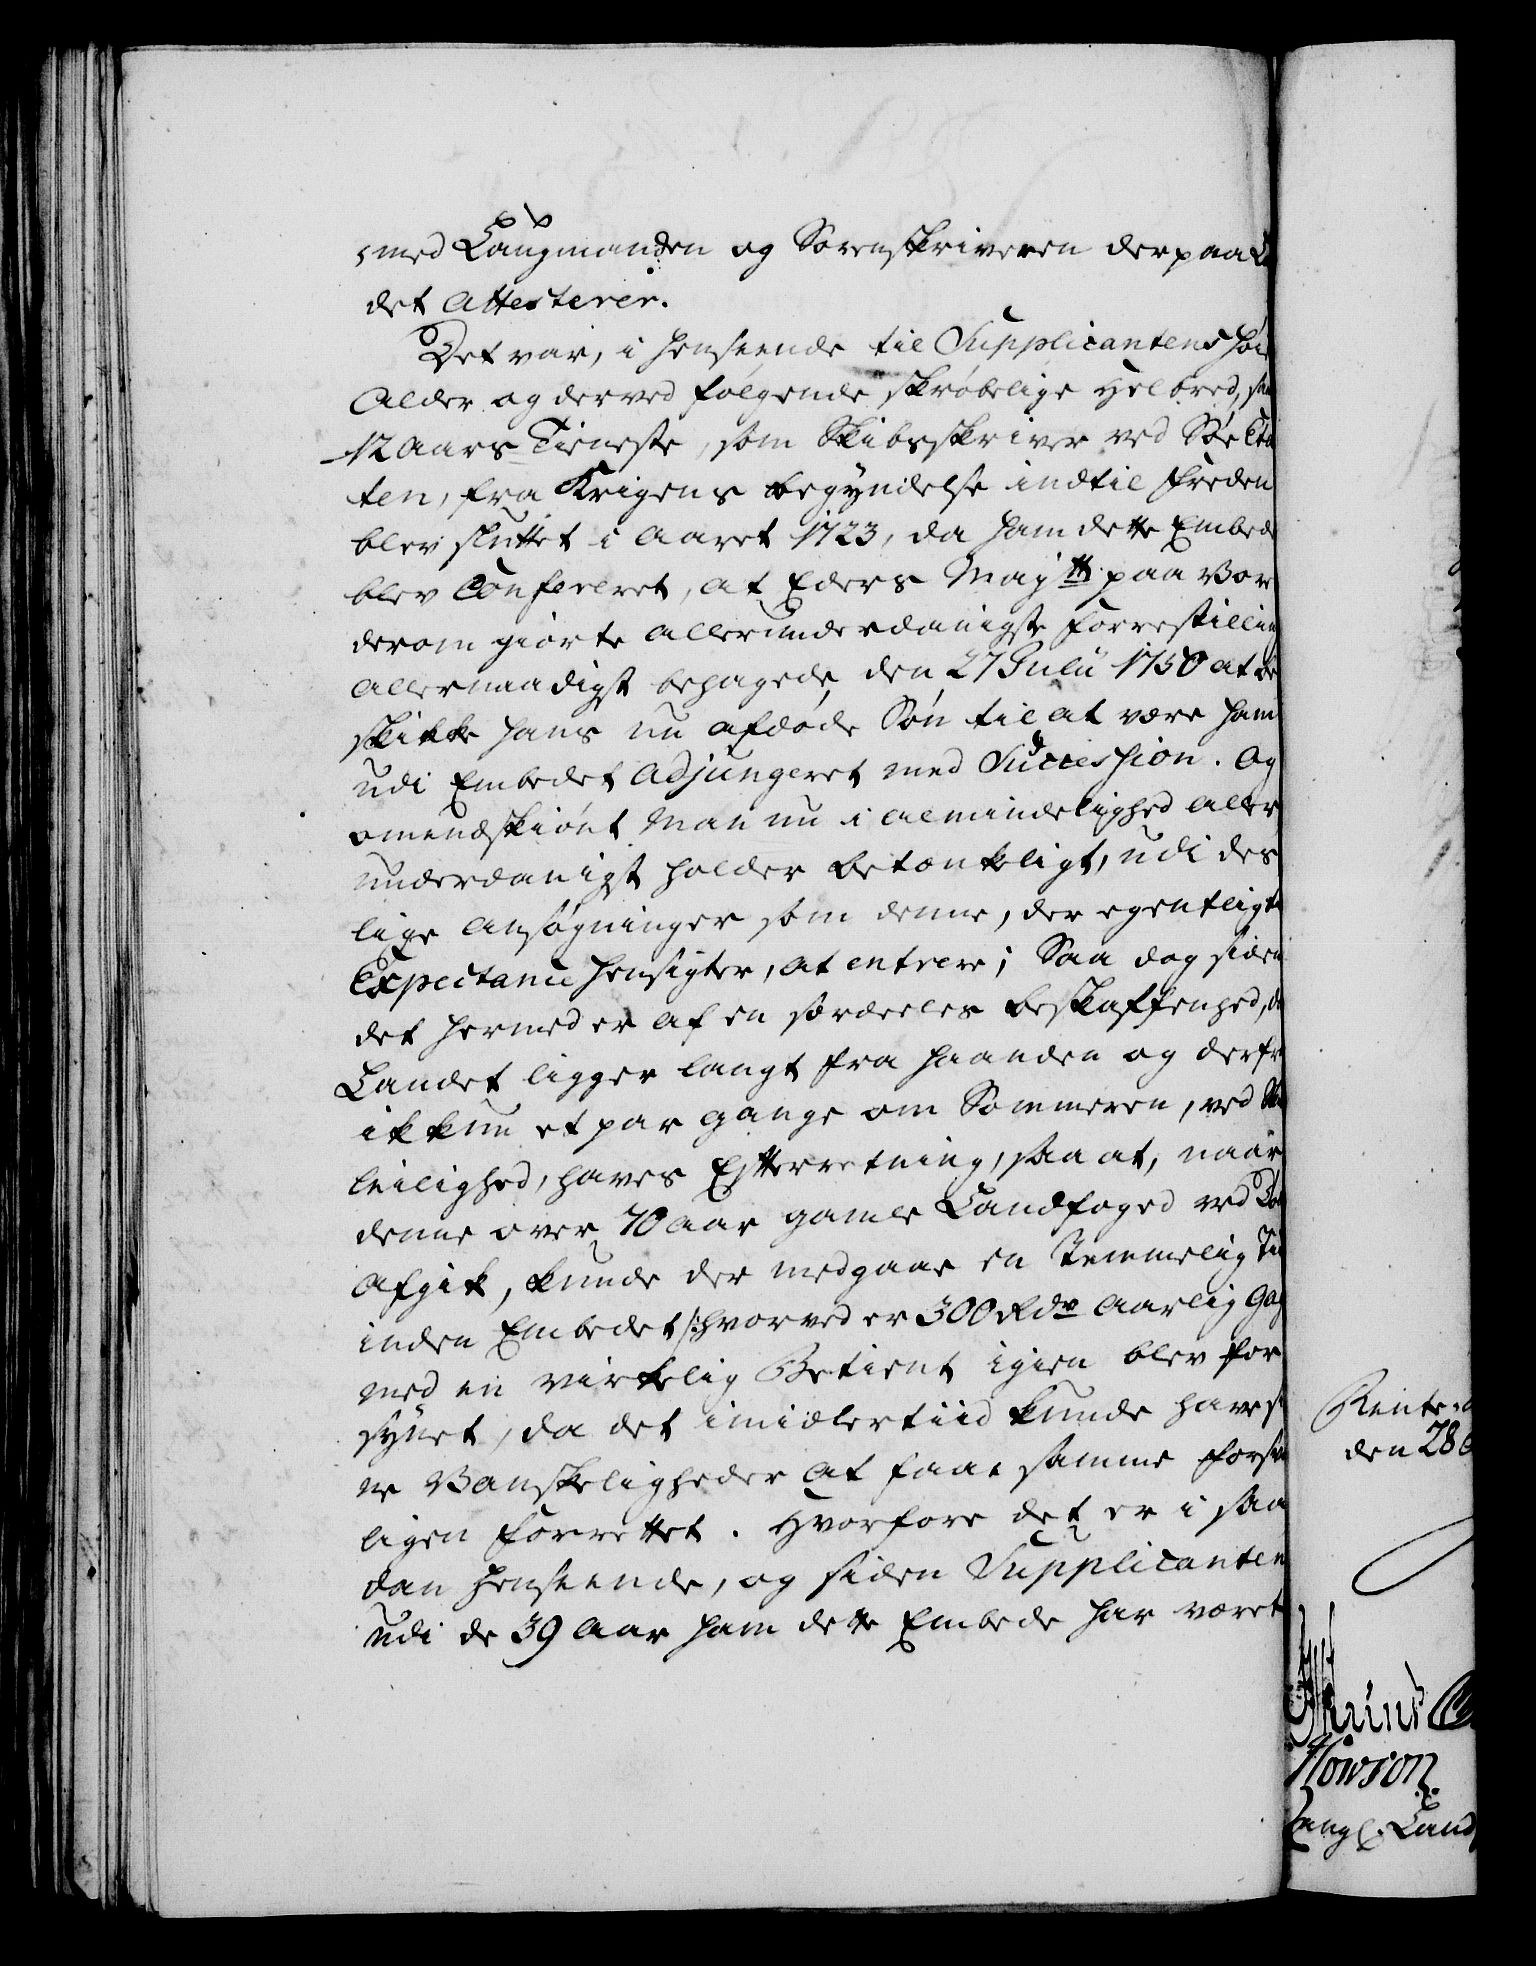 med Laugmanden og Sorenskriveren derpaa La
det attesterer.
Det var, i henseende til Supplicantens høie
Alder og derved følgende skrøbelige Helbred, sa
12 Aars Tieneste, som Skibsskriver ved Søe Eta
ten, fra Krigens begyndelse indtil Freden
blev sluttet i Aaret 1723, da ham dette Embede
blev Confereret, at Eders Majtt paa Vor
derom giorte allerunderdanigste Forrestilling
allernaadigst behagede den 27 Julii 1750 at be
skikke hans nu afdøde Søn til at være ham
udi Embedet Adjungeret med Succession. Og
omendskiønt Man nu i almindelighed aller
underdanigst holder betænkeligt, udi des
lige Ansøgninger som denne, der egentligt
Expectance hensigter, at entrere; Saa dog siden
det hermed er af en særdeeles beskaffenhed, da
Landet ligger langt fra Haanden og derfra
ikkun et par gange om Sommeren, ved Skibs
leilighed, haves Efterretning, saa at, naar
denne over 70 Aar gamle Landfoged ved Dø
afgik, kunde der medgaae en temmelig Tid
inden Embedet /: hvorved er 300 Rdr Aarlig Gag
med en virkelig Betient igien blev for
synet, da det imidlertiid kunde have si
ne Vanskeligheder at faae samme forsva
ligen forrettet. Hvorfore det er i saa
dan henseende, og siden Supplicanten
udi de 39 Aar ham dette Embede har været
Rente
den 28
Howson
Landf